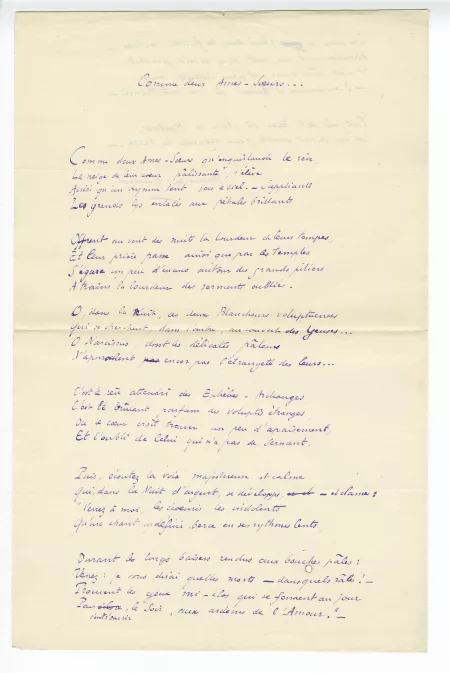 Comme deux Ames-Sœurs...
Comme deux Ames-Sœurs qu'enguirlande le rêve
La neige de leur cœur, pâlissante, s'élève
Ainsi qu'un hymne lent vers le ciel. – Suppliants
Les grands lys enlacés aux pétales brillants
Offrent au vent des nuits la lourdeur de leurs tempes,
Et leur prière passe ainsi que par les Temples
S'égare un peu d'encens autour des grands piliers
A travers la lourdeur des serments oubliés.
O, dans la Nuit, ces deux Blancheurs voluptueuses
Qui se cherchent, dans l'ombre, au couvent des Yeuses...
O Narcissus dont les délicates pâleurs
N'approchent encor pas l'étrangeté des leurs...
C'est le rêve attendri des Ephèbes-Archanges
C'est le parfum des voluptés étranges
Où le cœur croit trouver un peu d'apaisement,
Et l'oubli de Celui qui n'a pas de serment.
Puis, écoutez la voix majestueuse et calme
qui, dans la Nuit d'argent, se développe, – et clame :
"Venez à moi, les énervés les indolents
Qu'un chant indéfini berce en ses rythmes lents
Durant les longs baisers rendus aux bouches pâles :
Venez : je vous dirai quelles morts – dans quels râles ! –
Trouvent les yeux mi-clos qui se ferment au jour
Pour , le Soir, aux ardeurs de l'Amour." –
s'entrouvrir